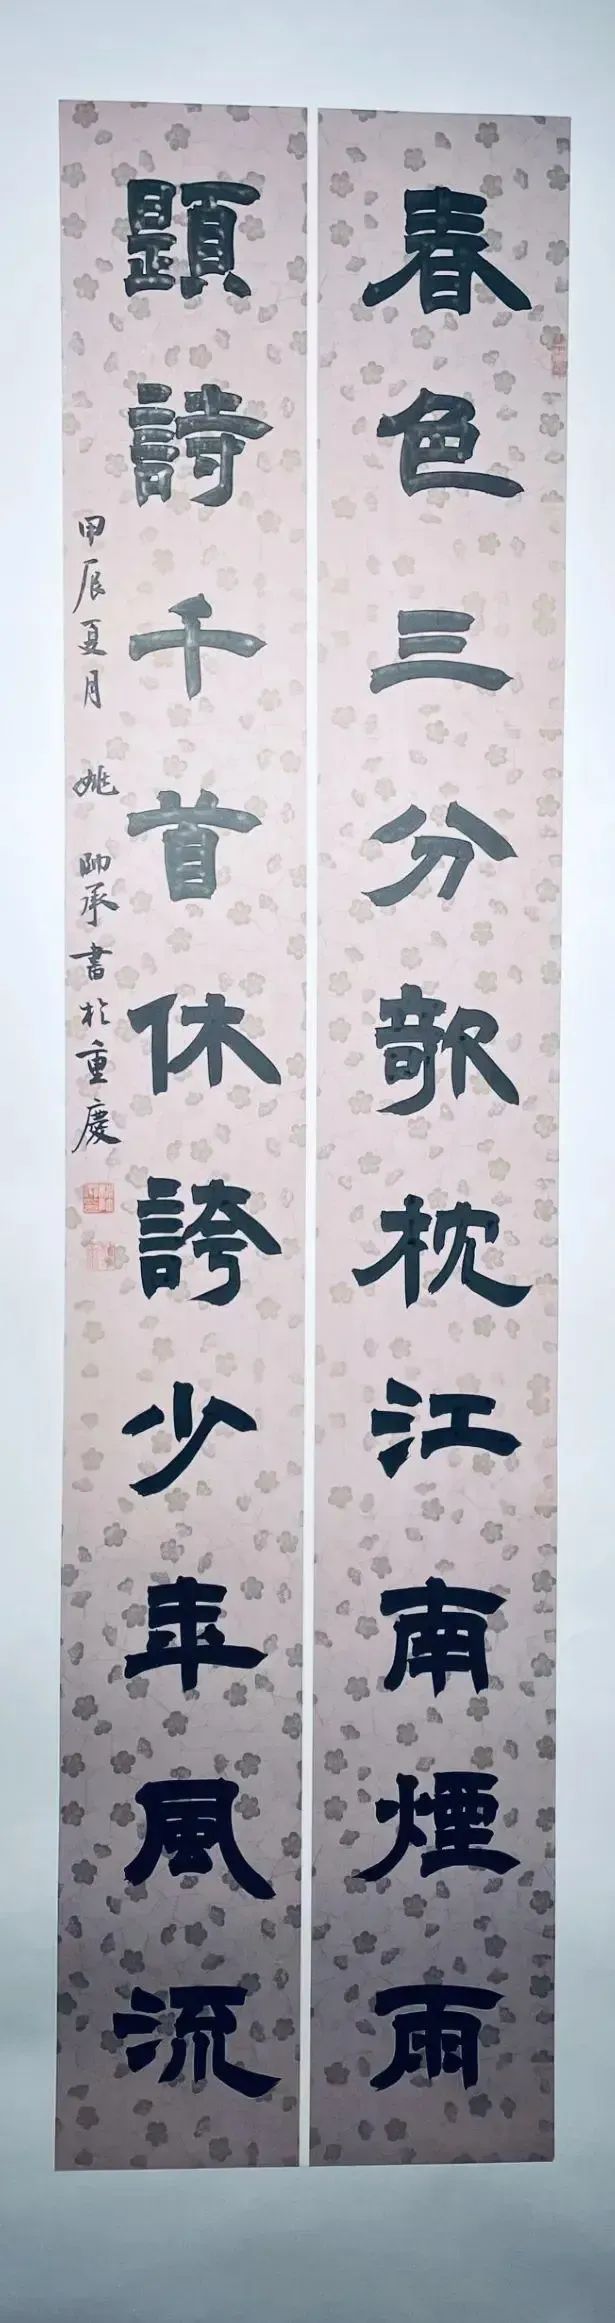 春色三分欹枕江南煙雨
題詩千首休誇少年風流
甲辰夏月 姚 承書於重慶